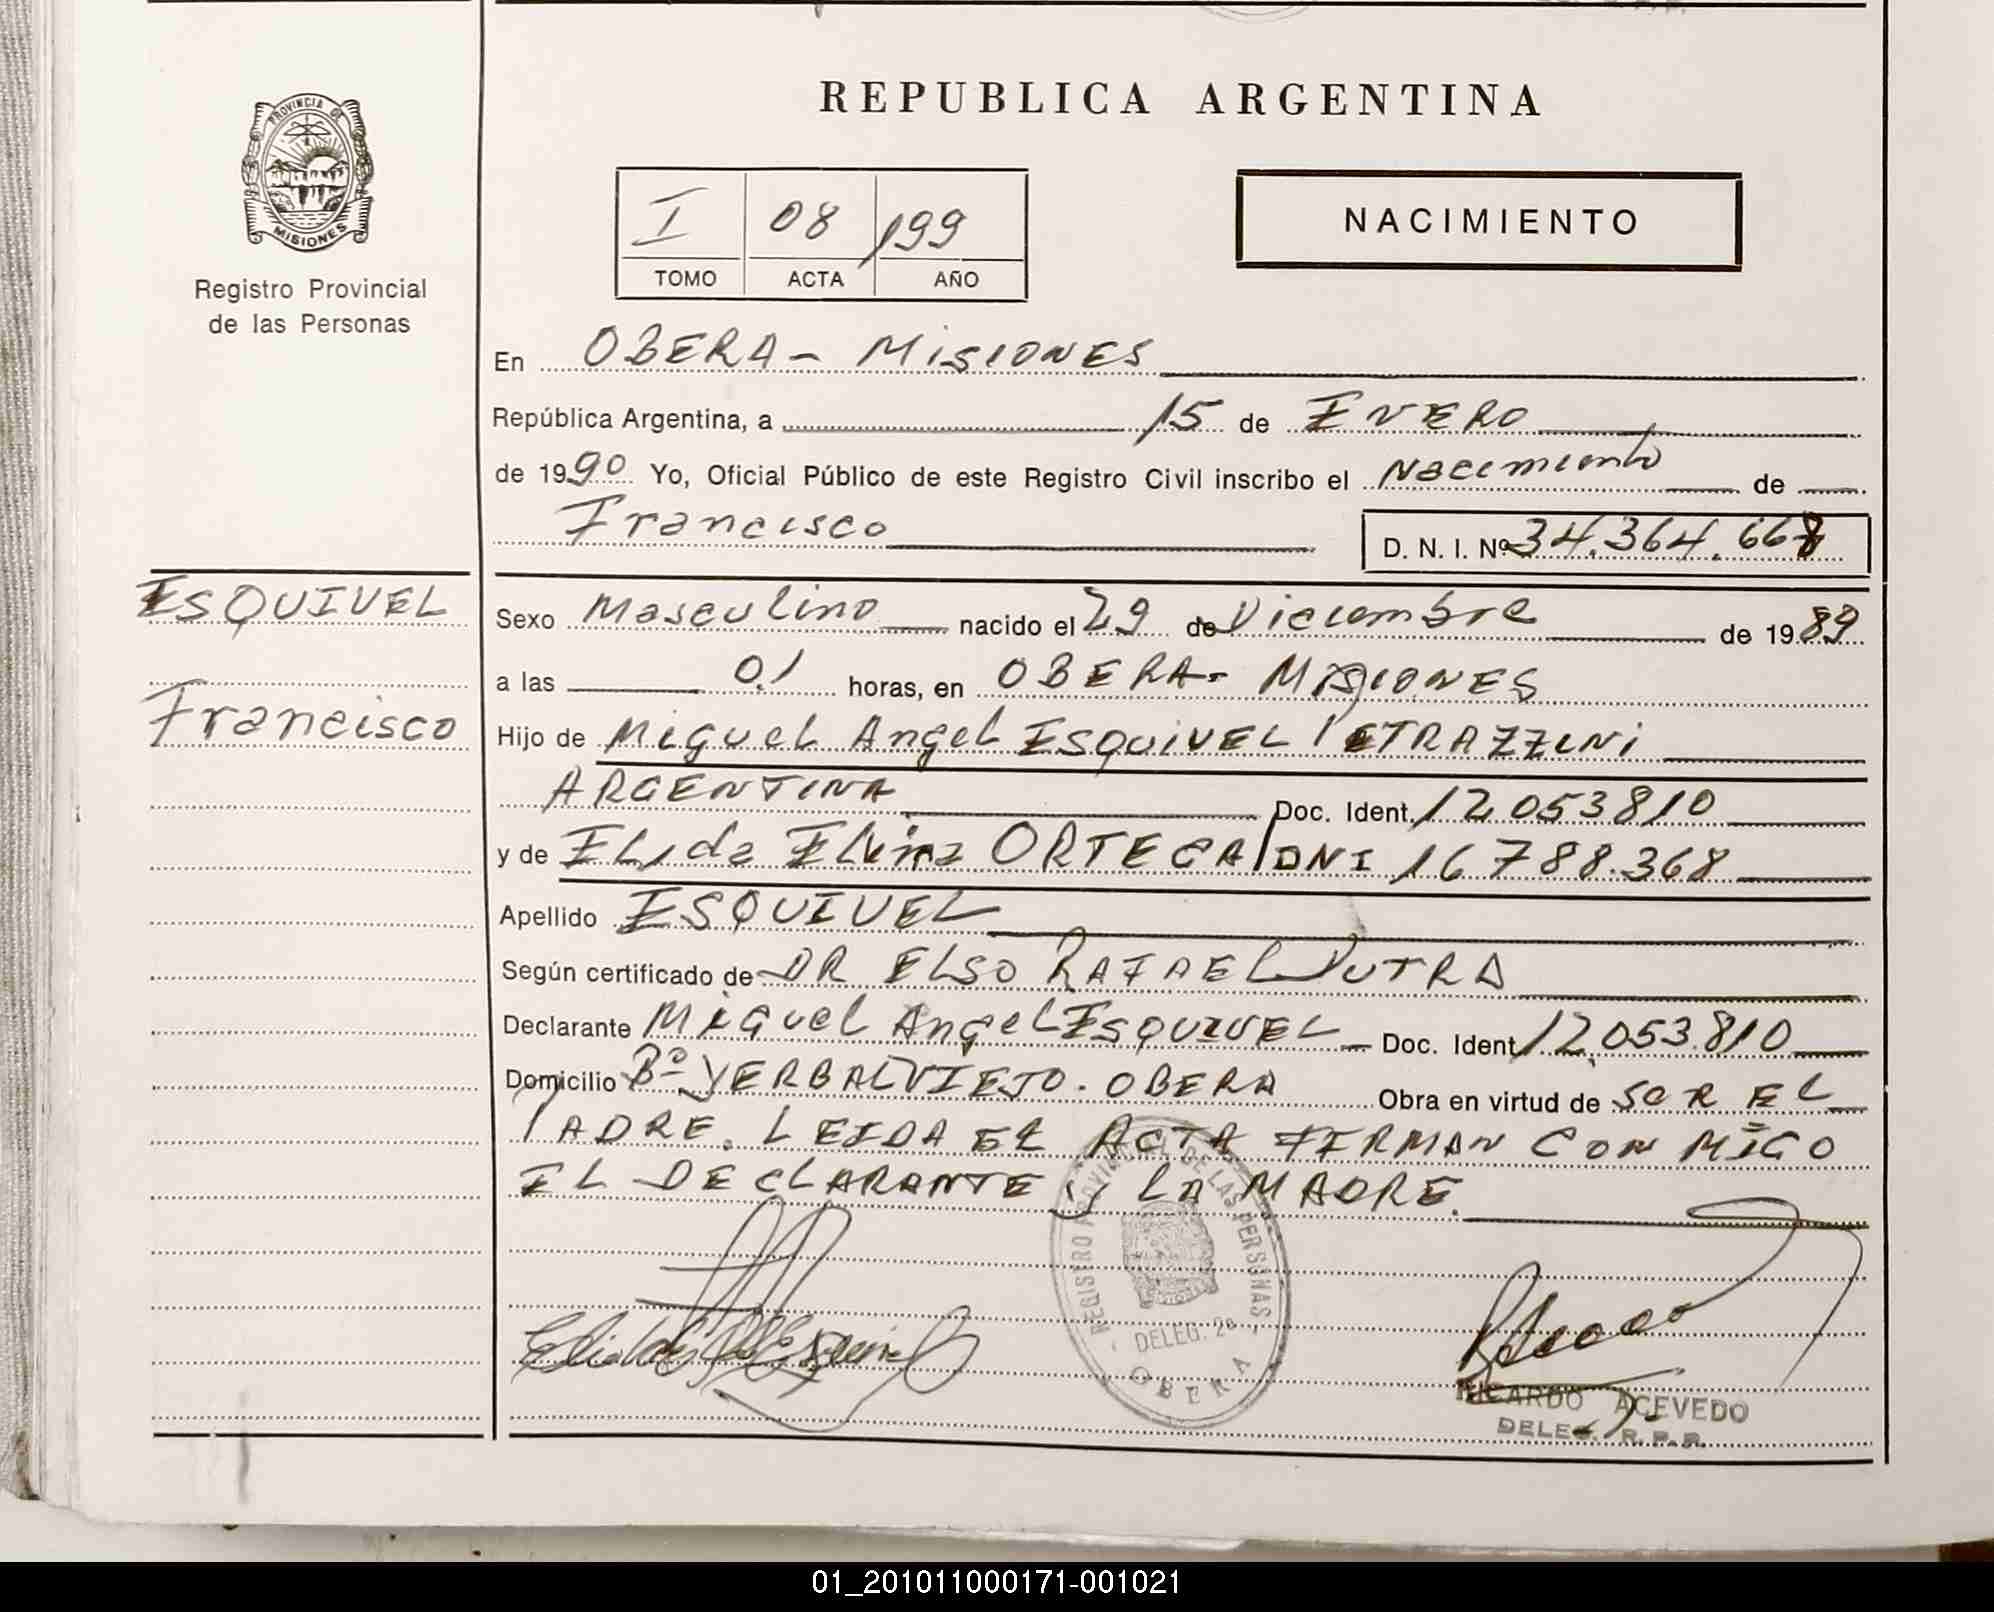 REPUBLICA ARGENTINA
PROVINCIA DE
MISIONES
Registro Provincial
de las Personas
I 08 /99
TOMO ACTA AÑO
NACIMIENTO
En OBERA - MISIONES
República Argentina, a 15 de ENERO
de 1990 Yo, Oficial Público de este Registro Civil inscribo el Nacimiento de
Francisco D. N. I. Nº 34.364.668
ESQUIVEL
Francisco
Sexo Masculino nacido el 29 de Diciembre de 1989
a las 01 horas, en OBERA - MISIONES
Hijo de Miguel Angel ESQUIVEL PETRAZZINI
ARGENTINA Doc. Ident. 12 053810
y de ELida Elvira ORTEGA/DNI 16 788.368
Apellido ESQUIVEL
Según certificado de DR ELSO RAFAEL DUTRA
Declarante Miguel Angel ESQUIVEL Doc. Ident 12.053.810
Domicilio Bº YERBAL VIEJO. OBERA Obra en virtud de SER EL
PADRE. LEIDA EL ACTA FIRMAN CONMIGO
EL DECLARANTE y LA MADRE.
REGISTRO PROVINCIAL DE LAS PERSONAS
DELEG. 2a
OBERA
RICARDO ACEVEDO
DELEG. R.P.P.
01_201011000171-001021